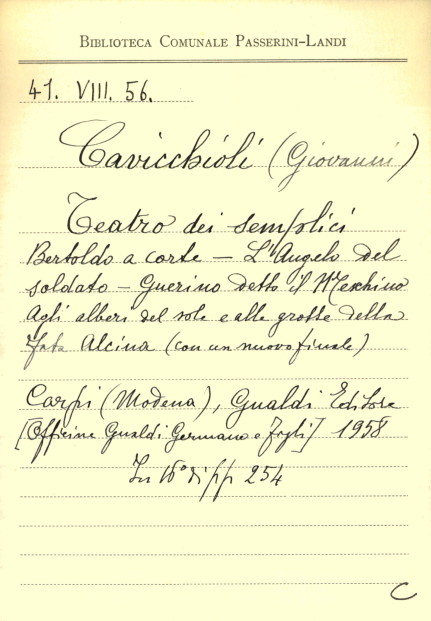 BIBLIOTECA COMUNALE PASSERINI-LANDI
41. VIII. 56.
Cavicchioli (Giovanni)
Teatro dei semplici
Bertoldo a corte — L'Angelo del
soldato — Guerino detto il Meschino
Agli alberi del sole e alle grotte della
Fata Alcina (con un nuovo finale)
Carpi (Modena), Gualdi Editore
[Officine Gualdi Germano e Figli] 1958
In 16° di pp 254
C